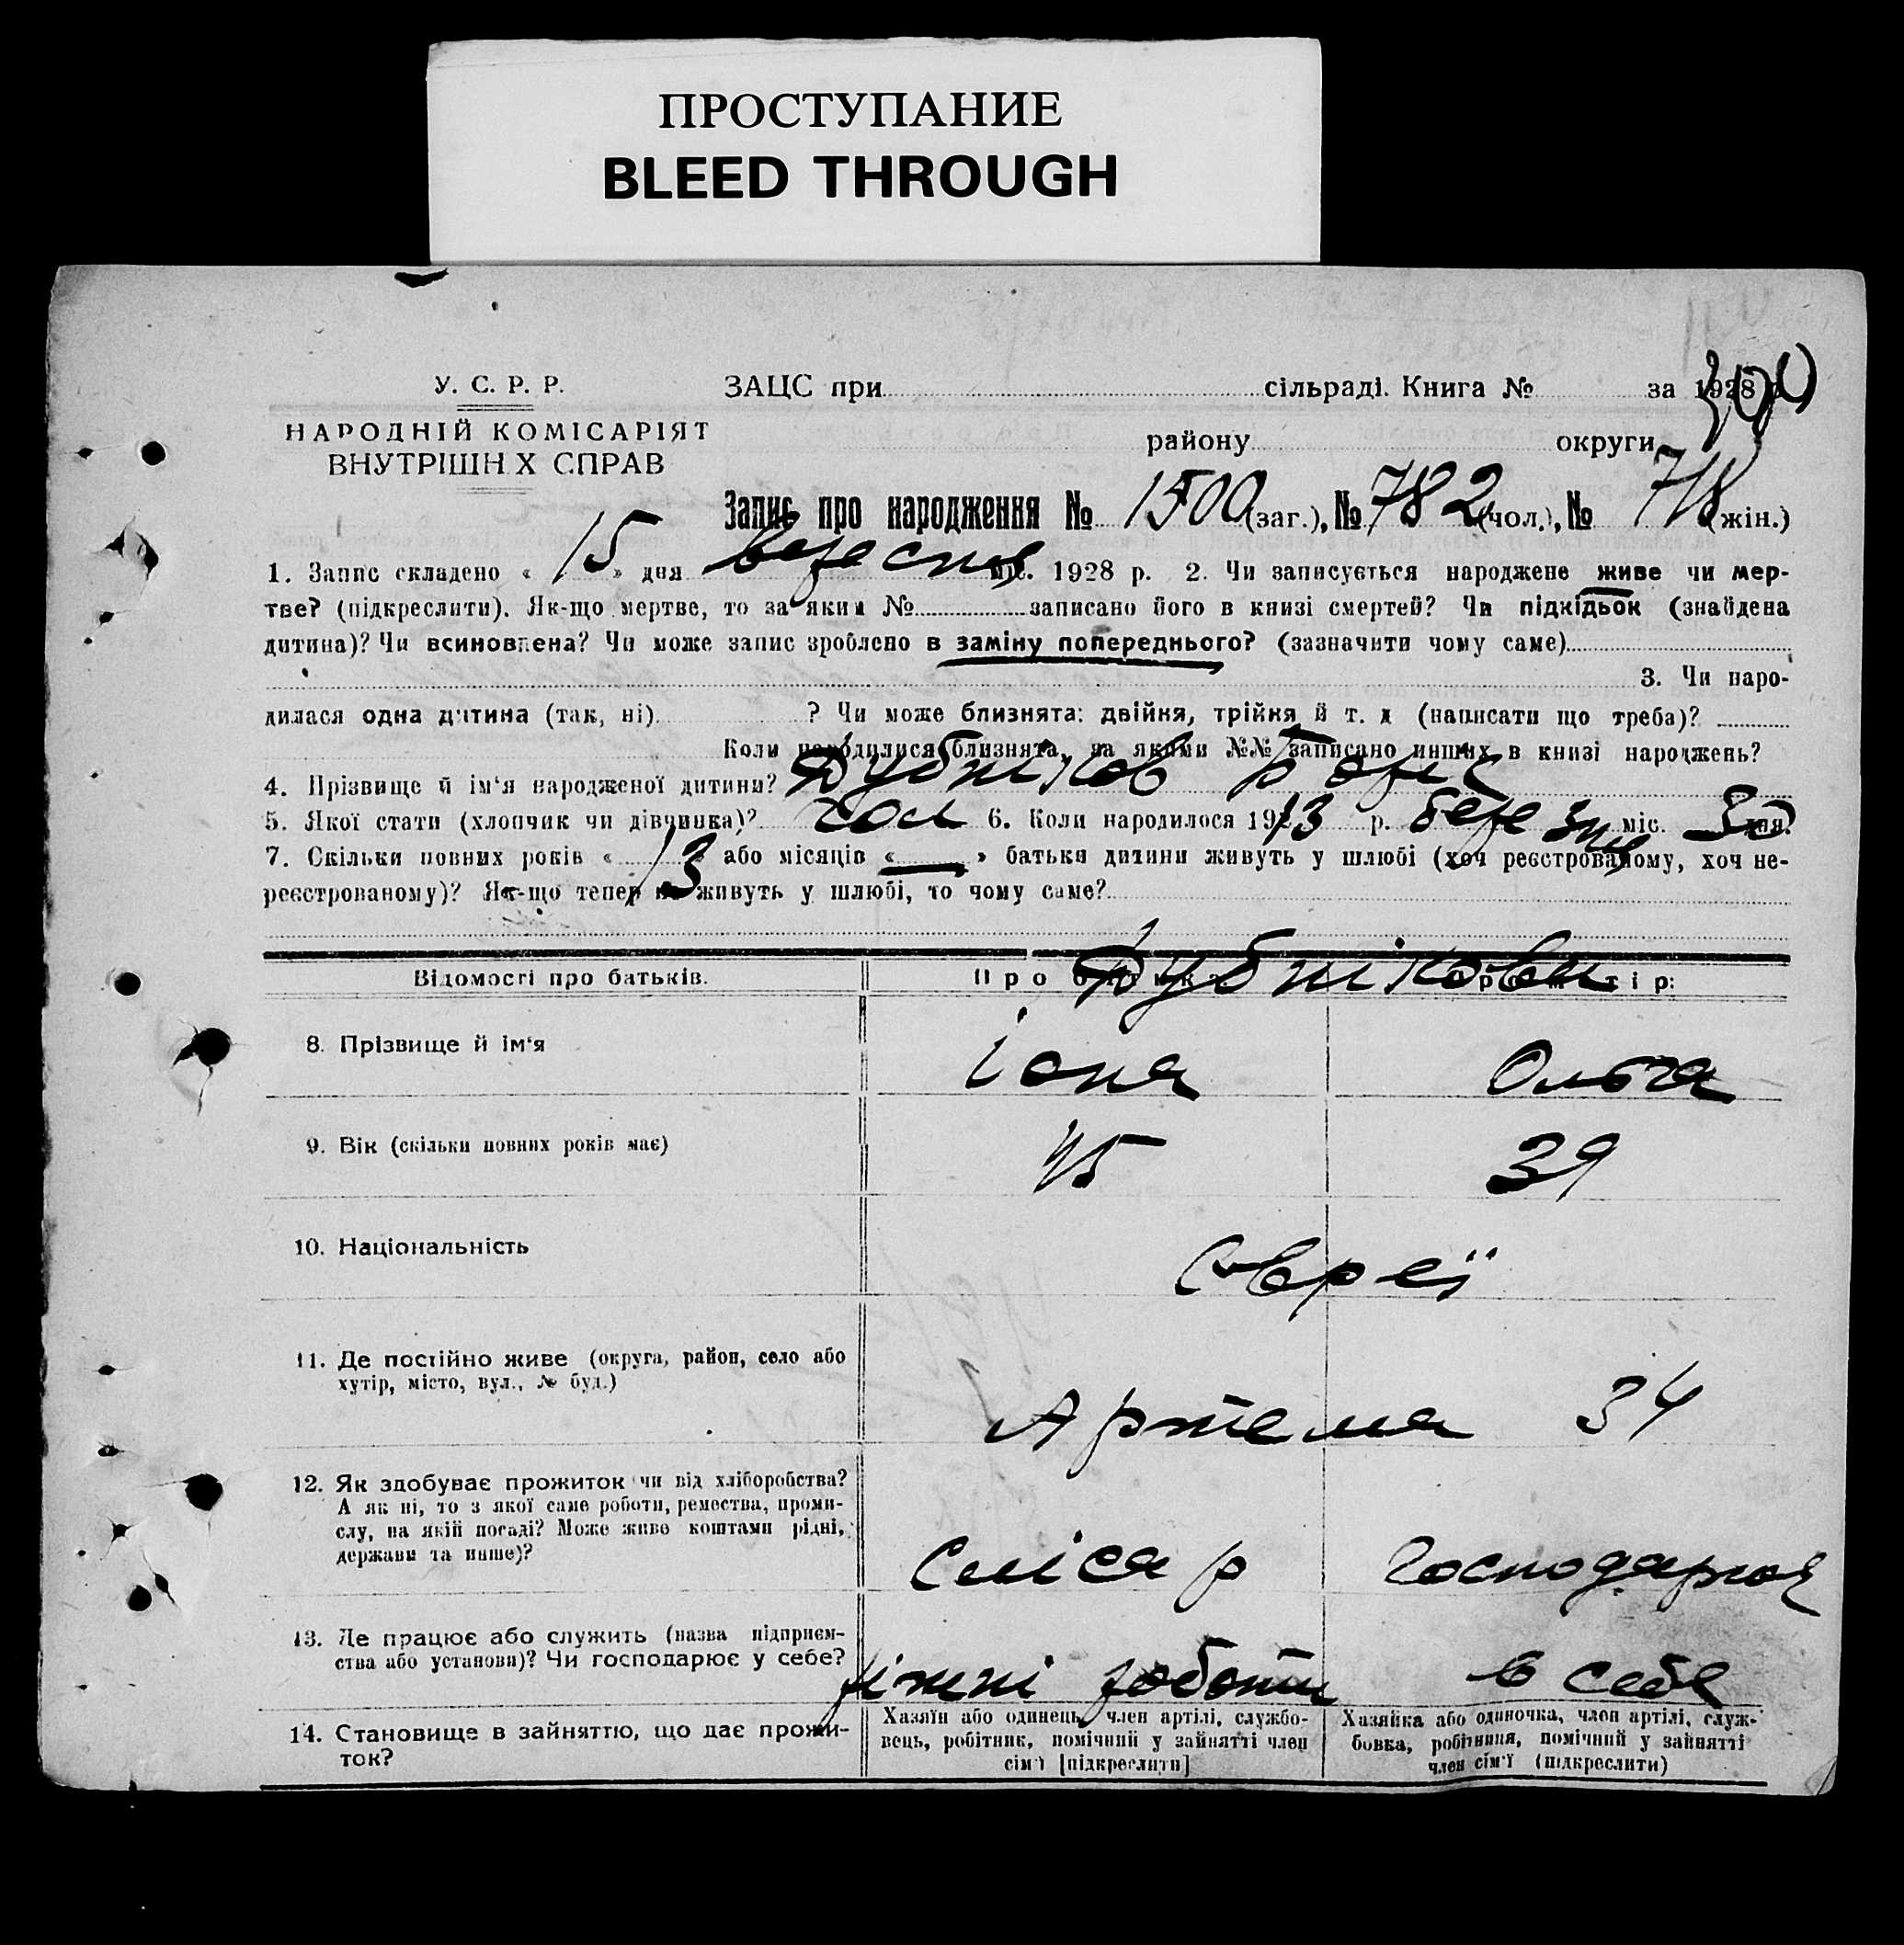 ПРОСТУПАНИЕ
BLEED THROUGH
У. С. Р. Р.
НАРОДНІЙ КОМІСАРІЯТ
ВНУТРІШН Х СПРАВ
ЗАЦС при сільраді. Книга № за 1928
району округи
Запис про народження № 1500 (заг.), № 782 (чол.), № 718 (жін.)
1. Запис складено « 15 » дня вересня міс. 1928 р. 2. Чи записується народжене живе чи мер-
тве? (підкреслити). Як-що мертве, то за яким № записано його в книзі смертей? Чи підкідьок (знайдена
дитина)? Чи всиновлена? Чи може запис зроблено в заміну попереднього? (зазначити чому саме)
3. Чи наро-
дилася одна дитина (так, ні) ? Чи може близнята: двійня, трійня й т. д (написати що треба)?
Коли народилися близнята, за якими №№ записано инших в книзі народжень?
4. Прізвище й ім'я народженої дитини? Дубніков
5. Якої стати (хлопчик чи дівчинка)? чол 6. Коли народилося 1913 р. березня міс. 30 дня.
7. Скільки повних років « 13 » або місяців « — » батьки дитини живуть у шлюбі (хоч реєстрованому, хоч не-
реєстрованому)? Як-що тепер не живуть у шлюбі, то чому саме?
Відомості про батьків. Про батька Про матір:
Дубнікови
8. Прізвище й ім'я Іона Ольга
9. Вік (скільки повних років має) 45 39
10. Національність Євреї
11. Де постійно живе (округа, район, село або
хутір, місто, вул., № буд.)
Артема 34
12. Як здобуває прожиток чи від хліборобства?
А як ні, то з якої саме роботи, ремества, проми-
слу, на якій посаді? Може живе коштами рідні,
держави та инше)?
Слісар Господарює
13. Де працює або служить (назва підприєм-
ства або установи)? Чи господарює у себе?
ріжні роботи в себе
14. Становище в зайняттю, що дає прожи-
ток?
Хазяїн або одинець, член артілі, службо-
вець, робітник, помічний у зайнятті член
сім'ї [підкреслити]
Хазяйка або одиночка, член артілі, служ-
бовка, робітниця, помічний у зайнятті
член сім'ї (підкреслити)